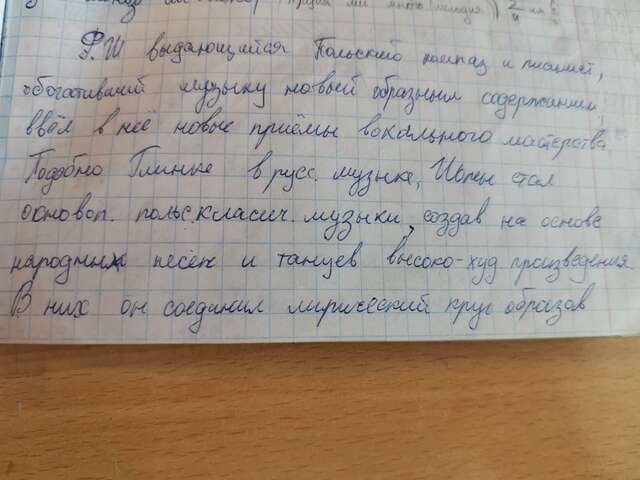 Ф.Ш выдающийся Польский композ и пианист,
обогативший музыку новым образным содержанием,
ввёл в неё новые приёмы вокального мастерства
Подобно Глинке в русс. музыке, Шопен стал
основоп. польс. класич. музыки, создав на основе
народных песен и танцев высоко-худ произведения
В них он соединил лирический круг образов